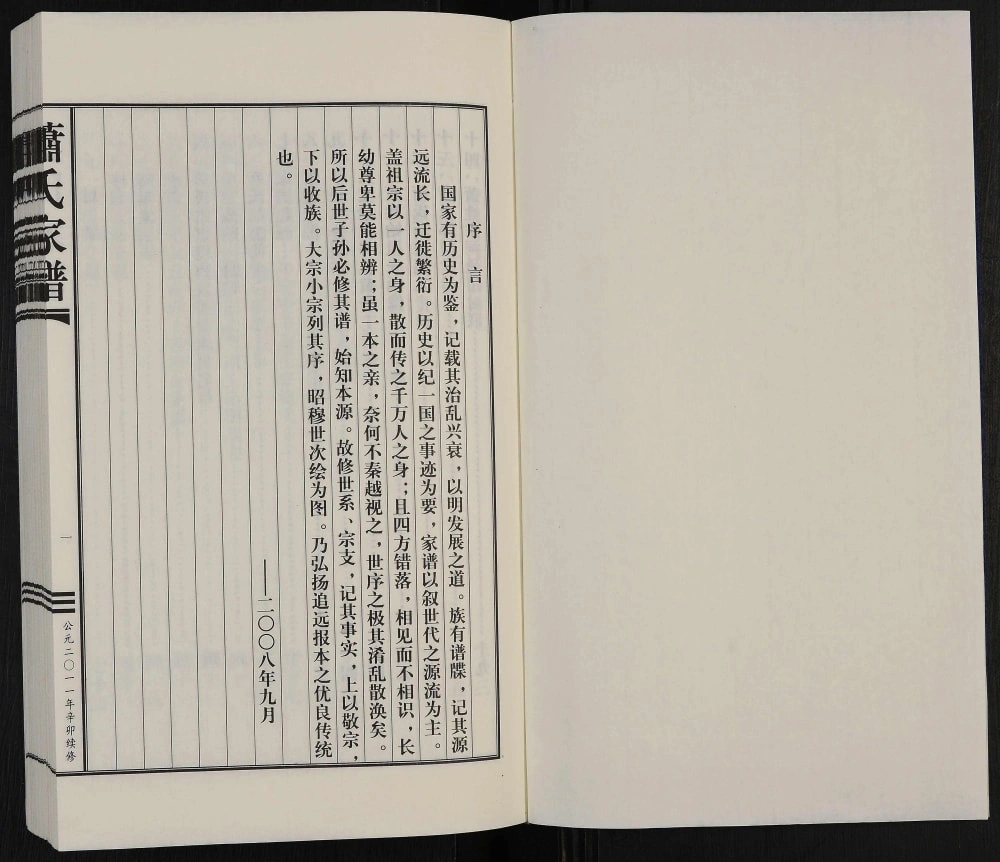 序言
国家有历史为鉴，记载其治乱兴衰，以明发展之道。族有谱牒，记其源
远流长，迁徙繁衍。历史以纪一国之事迹为要，家谱以叙世代之源流为主。
盖祖宗以一人之身，散而传之千万人之身；且四方错落，相见而不相识，长
幼尊卑莫能相辨；虽一本之亲，奈何不秦越视之，世序之极其淆乱散涣矣。
所以后世子孙必修其谱，始知本源。故修世系、宗支，记其事实，上以敬宗，
下以收族。大宗小宗列其序，昭穆世次绘为图。乃弘扬追远报本之优良传统
也。
——二〇〇八年九月
萧氏家谱
一
公元二〇一一年辛卯续修